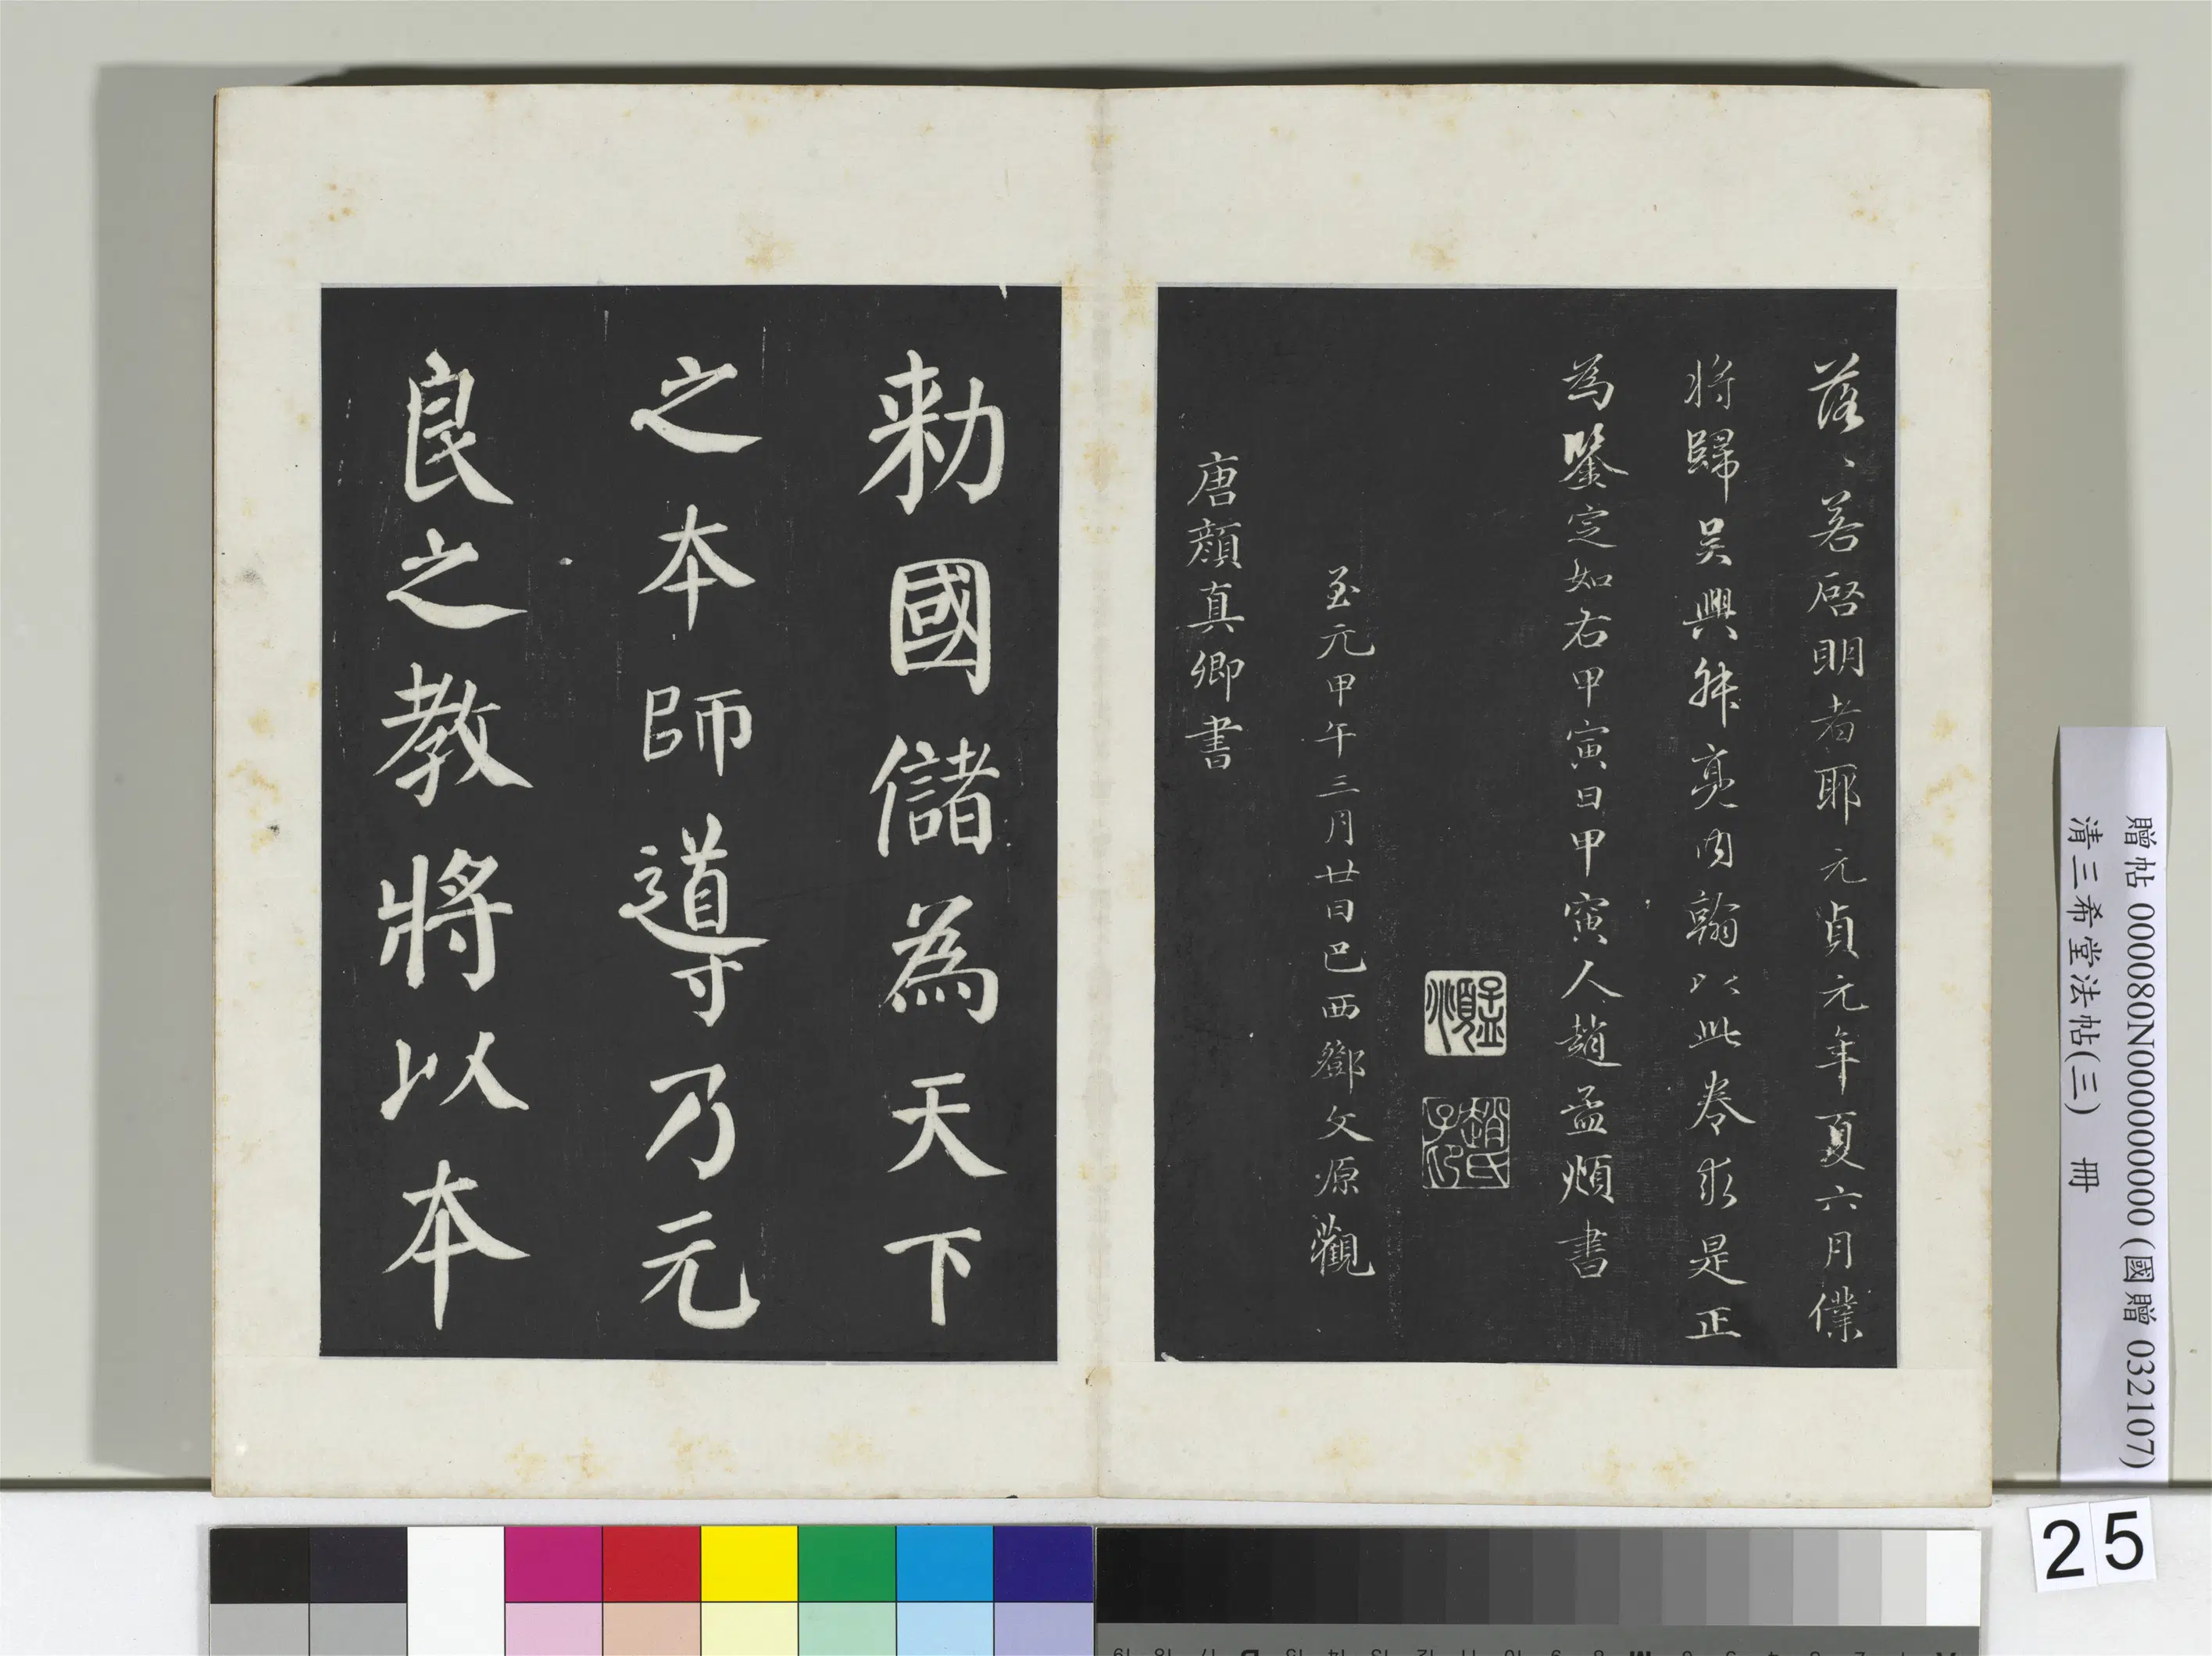 落、若啓明者耶元貞元年夏六月僕
將歸吳興叔亮内翰以此卷求是正
為鑒定如右甲寅日甲寅人趙孟頫書
孟頫
趙氏子昂
至元甲午三月廿日巴西鄧文原觀
唐顏真卿書
勅國儲為天下
之本師導乃元
良之教將以本
贈帖 000080N000000000 (國贈 032107)
清三希堂法帖(三) 冊
25